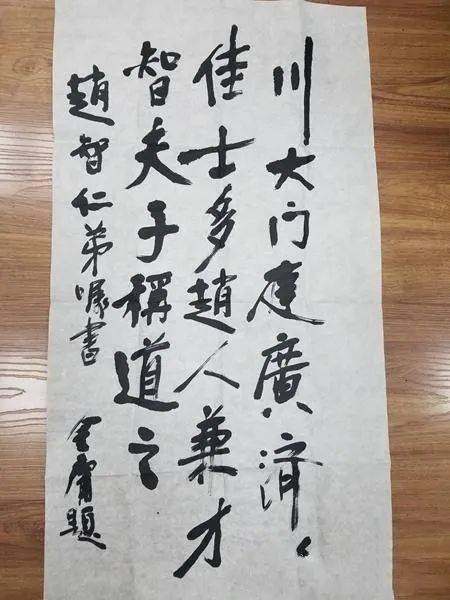 川大门庭廣济々
佳士多趙人兼才
智夫子稱道之
趙智仁弟嘱書
金庸題